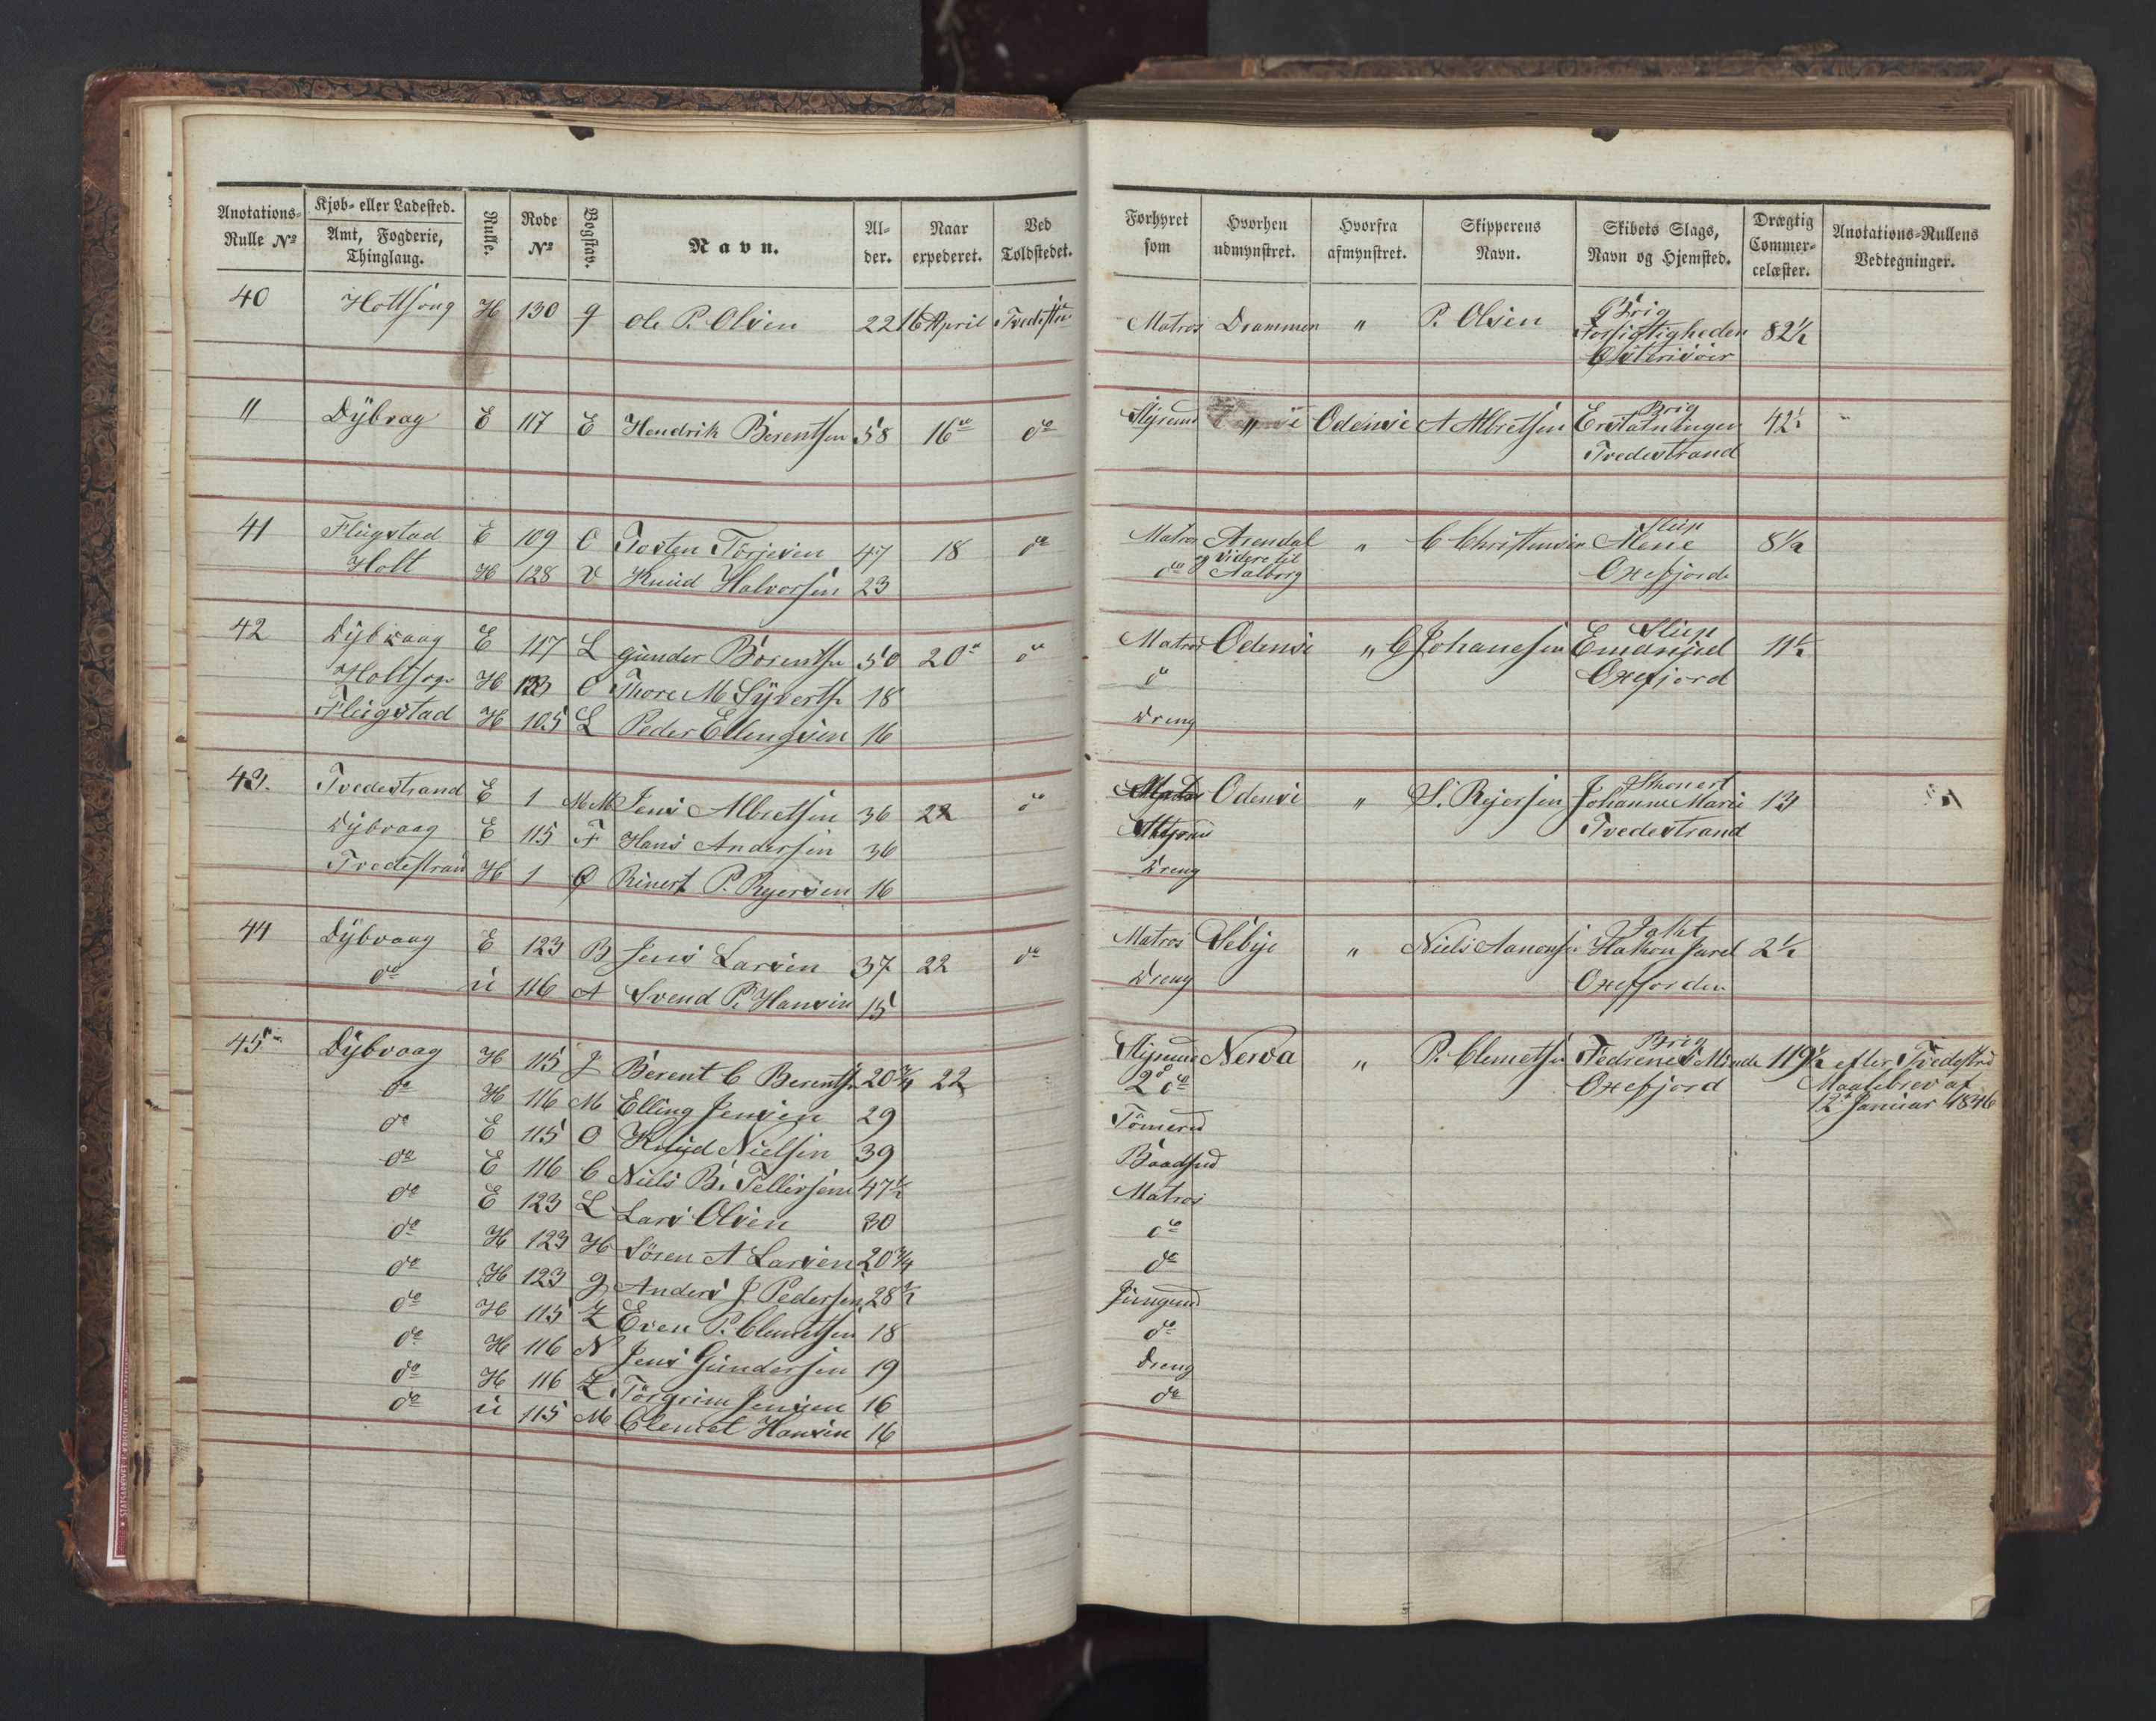 Anotations-Rulle № | Kjøb- eller Ladested. Amt, Fogderie, Thinglaug. | Rulle. | Rode № | Bogstav. | Navn. | Alder. | Naar expederet. | Ved Toldstedet. | Forhyret som | Hvorhen udmynstret. | Hvorfra afmynstret. | Skipperens Navn. | Skibets Slags, Navn og Hjemsted. | Drægtig Commercelæster. | Anotations-Rullens Vedtegninger.
40 | Holtsong | H | 130 | g | Ole P. Olsen | 22 | 16 April | Tvedestrd | Matros | Drammen | " | P. Olsen | Brig Forsigtigheden Østerisöer | 82½
" | Dÿbvag | E | 117 | E | Hendrik Berentsen | 58 | 16de | do | Styrmd | " | Odense | A Albretsen | Brig Erstatningen Tvedestrand | 42½
41 | Flugstad | E | 109 | C | Tosten Torjesen | 47 | 18 | do | Matros | Arendal og videre til Aalborg | " | C Christensen | Slup Alene Oxefjorde | 8½
Holt | H | 128 | V | Knud Halvorsen | 23 | do
42 | Dybvaag | E | 117 | L | Gunder Börentsn | 50 | 20de | do | Matros | Odense | " | C Johanesen | Slup Emanuel Oxefjord | 11½
Holtsogn | H | 133 | C | Thore M Syvertsn | 18 | do
Flugstad | H | 105 | L | Peder Ellingsen | 16 | Dreng
43. | Tvedestrand | E | 1 | MM | Jens Albretsen | 36 | 22 | do | Matros | Odense | " | S. Rejersen | Skonert Johanne Marie Tvedestrand | 13
Dybvaag | E | 115 | F | Hans Andersen | 36 | Styrmd
Tvedestrand | H | 1 | Ø | Rinert P. Ryersen | 16 | Dreng
44 | Dÿbvaag | E | 123 | B | Jens Larsen | 37 | 22 | do | Matros | Sebye | " | Niels Aanensen | Jakt Hakon Jarel Oxefjorden | 2½
do | ü | 116 | A | Svend P. Hansen | 15 | Dreng
45 | Dÿbvaag | H | 115 | J | Berent C Berentsn | 20¾ | 22 | Styrmd | Nerva | " | P. Clemetsen | Brig Fedrenes Minde Oxefjord | 119½ | efter Tvedestrd Maalebrev af 12 Januar 1846
do | H | 116 | M | Elling Jensen | 29 | 2d do
do | E | 115 | O | Knud Nielsen | 39 | Tömmerd
do | E | 116 | C | Niels B. Tellefsen | 47½ | Baadsmd
do | E | 123 | L | Lars Olsen | 30 | Matros
do | H | 123 | H | Sören A Larsen | 20¾ | do
do | H | 123 | g | Anders J Pedersen | 28½ | do
do | H | 115 | Z | Even P. Clemetsen | 18 | Jungmd
do | H | 116 | N | Jens Gundersen | 19 | do
do | H | 116 | Z | Törgrim Jensen | 16 | Dreng
do | ü | 115 | M | Clemet Hansen | 16 | do
STATSARKIVET